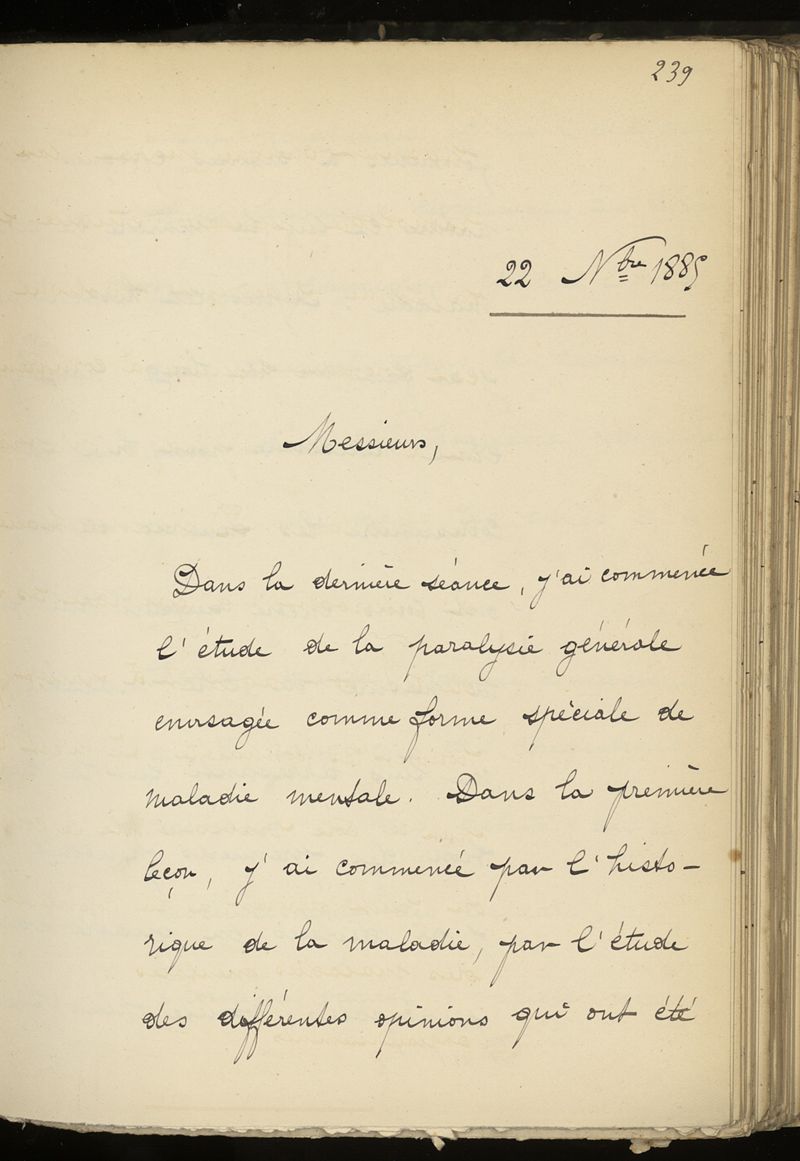 239
22 Nbre 1885
Messieurs,
Dans la dernière séance, j'ai commencée
l'étude de la paralysie générale
envisagée comme forme spéciale de
maladie mentale. Dans la première
leçon, j'ai commencé par l'histo-
rique de la maladie, par l'étude
des différentes opinions qui ont été